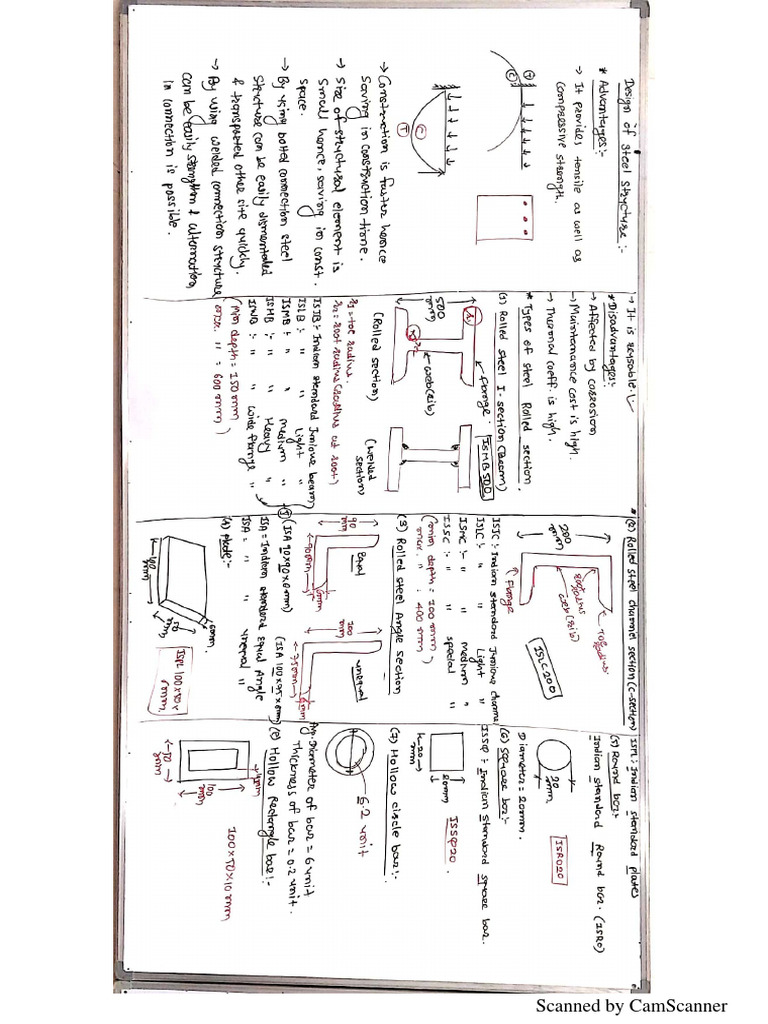 Design of Steel Structure :-
* Advantages :-
→ It provides tensile as well as
compressive strength.
T
C
C
T
→ Construction is faster hence
saving in construction time.
→ Size of structural element is
small hence, saving in const.
space.
→ By using bolted connection steel
structure can be easily dismentaled
& transported other site quickly.
→ By using welded connection structure
can be easily strengthn & alternation
in connection is possible.
→ It is reusable.
* Disadvantages :-
→ Affected by corrosion
→ Maintainance cost is high.
→ Thermal coeff. is high.
* Types of Steel Rolled section.
(1) Rolled steel I-section (Beam)
500
mm
flange.
ISMB500
web (rib)
(Rolled section)
(Welded
section)
r1 = toe radius.
r2 = root radius (radius at root)
ISJB :- Indian standard Juniour beam
ISLB :- " " Light "
ISMB :- " " medium "
ISHB :- " " Heavy "
ISWB :- " " wide flange "
(min depth = 150 mm
max. " = 600 mm )
I
(2) Rolled steel channel section (C-section)
200
mm
Toe radius
Root radius
web (rib)
Flange
ISLC200
ISJC :- Indian standard Juniour channel
ISLC :- " " Light "
ISMC :- " " medium "
ISSC :- " " special "
(min depth = 100 mm
max. " = 400 mm )
(3) Rolled steel Angle section
90
mm
Equal
6mm
90mm
100
mm
unequal
75mm
(ISA 90x90x6mm)
ISA = Indian standard Equal Angle
ISA = " " unequal "
(4) plate :-
100
mm
50
mm
6mm
ISPL 100x50x
6mm.
ISPL : Indian standard plates
(5) Round bar :-
Indian standard Round bar. (ISRO)
20
mm
ISRO20
Diameter = 20mm.
(6) square bar :-
ISSQ :- Indian standard square bar.
20mm
20
mm
ISSQ20
(7) Hollow circle bar :-
6.2 unit
Avg. Diameter of bar = 6 unit
Thickness of bar = 0.2 unit.
(8) Hollow Rectangle bar :-
100
mm
50
mm
100x50x10 mm
Scanned by CamScanner